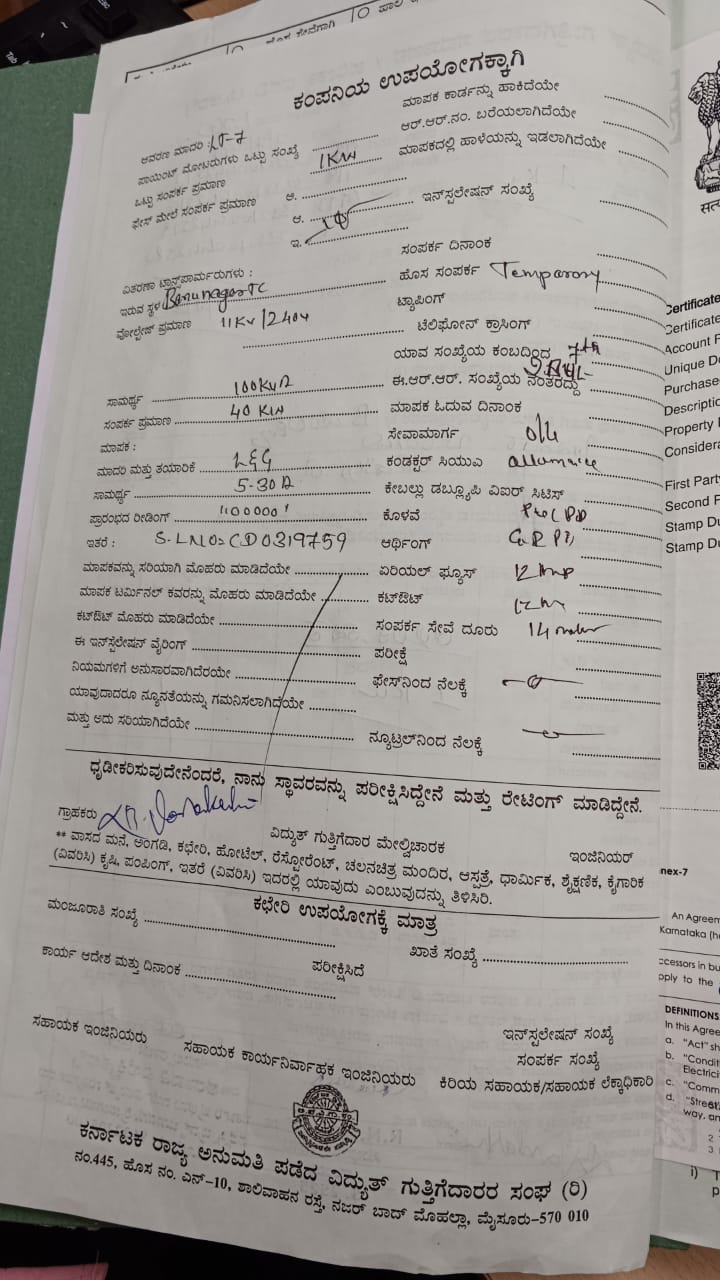 ಹೊಸ ಸೇವೆಗಾಗಿ
ಕಂಪನಿಯ ಉಪಯೋಗಕ್ಕಾಗಿ
ಆವರಣ ಮಾದರಿ : LT-7
ಮಾಪಕ ಕಾರ್ಡನ್ನು ಹಾಕಿದೆಯೇ
ಪಾಯಿಂಟ್ ಮೋಟರುಗಳು ಒಟ್ಟು ಸಂಖ್ಯೆ
ಆರ್.ಆರ್.ನಂ. ಬರೆಯಲಾಗಿದೆಯೇ
ಒಟ್ಟು ಸಂಪರ್ಕ ಪ್ರಮಾಣ 1KW
ಮಾಪಕದಲ್ಲಿ ಹಾಳೆಯನ್ನು ಇಡಲಾಗಿದೆಯೇ
ಫೇಸ್ ಮೇಲೆ ಸಂಪರ್ಕ ಪ್ರಮಾಣ
ಅ.
ಆ.
ಇನ್‌ಸ್ಟಲೇಷನ್ ಸಂಖ್ಯೆ
ಇ.
ಸಂಪರ್ಕ ದಿನಾಂಕ
ವಿತರಣಾ ಟ್ರಾನ್ಸ್‌ಫಾರ್ಮರುಗಳು :
ಹೊಸ ಸಂಪರ್ಕ Temporary
ಇರುವ ಸ್ಥಳ TC
ಟ್ಯಾಪಿಂಗ್
ವೋಲ್ಟೇಜ್ ಪ್ರಮಾಣ 11KV/240V
ಟೆಲಿಫೋನ್ ಕ್ರಾಸಿಂಗ್
ಯಾವ ಸಂಖ್ಯೆಯ ಕಂಬದಿಂದ
ಸಾಮರ್ಥ್ಯ 100KVA
ಈ.ಆರ್.ಆರ್. ಸಂಖ್ಯೆಯ ನಂತರದ್ದು
ಸಂಪರ್ಕ ಪ್ರಮಾಣ 40 KW
ಮಾಪಕ ಓದುವ ದಿನಾಂಕ
ಮಾಪಕ :
ಸೇವಾಮಾರ್ಗ O/H
ಮಾದರಿ ಮತ್ತು ತಯಾರಿಕೆ L&G
ಕಂಡಕ್ಟರ್ ಸಿಯುಎ
ಸಾಮರ್ಥ್ಯ 5-30A
ಕೇಬಲ್ಲು ಡಬ್ಲ್ಯೂಪಿ ವಿಐರ್ ಸಿಟಿಸ್
ಪ್ರಾರಂಭದ ರೀಡಿಂಗ್
ಕೊಳವೆ
ಇತರೆ : S.LNO=CD0319759
ಆರ್ಥಿಂಗ್
ಮಾಪಕವನ್ನು ಸರಿಯಾಗಿ ಮೊಹರು ಮಾಡಿದೆಯೇ
ಏರಿಯಲ್ ಫ್ಯೂಸ್ 12 Amp
ಮಾಪಕ ಟರ್ಮಿನಲ್ ಕವರನ್ನು ಮೊಹರು ಮಾಡಿದೆಯೇ
ಕಟ್‌ಔಟ್
ಕಟ್‌ಔಟ್ ಮೊಹರು ಮಾಡಿದೆಯೇ
ಸಂಪರ್ಕ ಸೇವೆ ದೂರು 14 meter
ಈ ಇನ್‌ಸ್ಟೆಲೇಷನ್ ವೈರಿಂಗ್
ಪರೀಕ್ಷೆ
ನಿಯಮಗಳಿಗೆ ಅನುಸಾರವಾಗಿದೆರಯೇ
ಫೇಸ್‌ನಿಂದ ನೆಲಕ್ಕೆ
ಯಾವುದಾದರೂ ನ್ಯೂನತೆಯನ್ನು ಗಮನಿಸಲಾಗಿದೆಯೇ
ಮತ್ತು ಅದು ಸರಿಯಾಗಿದೆಯೇ
ನ್ಯೂಟ್ರಲ್‌ನಿಂದ ನೆಲಕ್ಕೆ
ಧೃಡೀಕರಿಸುವುದೇನೆಂದರೆ, ನಾನು ಸ್ಥಾವರವನ್ನು ಪರೀಕ್ಷಿಸಿದ್ದೇನೆ ಮತ್ತು ರೇಟಿಂಗ್ ಮಾಡಿದ್ದೇನೆ.
ಗ್ರಾಹಕರು
ವಿದ್ಯುತ್ ಗುತ್ತಿಗೆದಾರ ಮೇಲ್ವಿಚಾರಕ
ಇಂಜಿನಿಯರ್
** ವಾಸದ ಮನೆ, ಅಂಗಡಿ, ಕಛೇರಿ, ಹೋಟೆಲ್, ರೆಸ್ಟೋರೆಂಟ್, ಚಲನಚಿತ್ರ ಮಂದಿರ, ಆಸ್ಪತ್ರೆ, ಧಾರ್ಮಿಕ, ಶೈಕ್ಷಣಿಕ, ಕೈಗಾರಿಕ
(ವಿವರಿಸಿ) ಕೃಷಿ, ಪಂಪಿಂಗ್, ಇತರೆ (ವಿವರಿಸಿ) ಇದರಲ್ಲಿ ಯಾವುದು ಎಂಬುವುದನ್ನು ತಿಳಿಸಿರಿ.
ಕಛೇರಿ ಉಪಯೋಗಕ್ಕೆ ಮಾತ್ರ
ಮಂಜೂರಾತಿ ಸಂಖ್ಯೆ
ಖಾತೆ ಸಂಖ್ಯೆ
ಕಾರ್ಯ ಆದೇಶ ಮತ್ತು ದಿನಾಂಕ
ಪರೀಕ್ಷಿಸಿದೆ
ಇನ್‌ಸ್ಟಲೇಷನ್ ಸಂಖ್ಯೆ
ಸಂಪರ್ಕ ಸಂಖ್ಯೆ
ಸಹಾಯಕ ಇಂಜಿನಿಯರು
ಸಹಾಯಕ ಕಾರ್ಯನಿರ್ವಾಹಕ ಇಂಜಿನಿಯರು
ಕಿರಿಯ ಸಹಾಯಕ/ಸಹಾಯಕ ಲೆಕ್ಕಾಧಿಕಾರಿ
ಕರ್ನಾಟಕ ರಾಜ್ಯ ಅನುಮತಿ ಪಡೆದ ವಿದ್ಯುತ್ ಗುತ್ತಿಗೆದಾರರ ಸಂಘ (ರಿ)
ನಂ.445, ಹೊಸ ನಂ. ಎನ್-10, ಶಾಲಿವಾಹನ ರಸ್ತೆ, ನಜರ್ ಬಾದ್ ಮೊಹಲ್ಲಾ, ಮೈಸೂರು-570 010
सत्य
Certificate
Certificate
Account
Unique
Purchase
Property
First Party
Second
Stamp
Stamp
An
Karnataka
to the
DEFINITIONS
In this
a. "Act"
b.
c.
d.
way,
i)